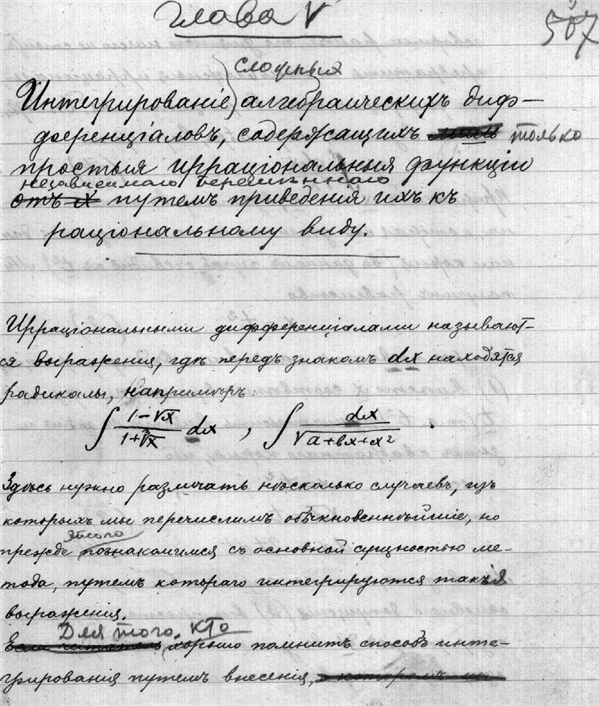 Глава V
507
сложныя
Интегрированіе алгебраическихъ диф-
ференціаловъ, содержащихъ только
простыя ирраціональныя функціи
независимаго переменнаго
отъ путемъ приведенія ихъ къ
раціональному виду.
Ирраціональными дифференціалами называют-
ся выраженія, гдѣ передъ знакомъ dx находятся
радикалы, напримѣръ:
∫ (1-√x)/(1+∛x) dx , ∫ dx/√(a+bx+x²) .
Здѣсь нужно различать нѣсколько случаевъ, изъ
которыхъ мы перечислимъ обыкновеннѣйшіе, но
прежде этого познакомимся съ основной сущностью ме-
тода, путемъ котораго интегрируются такія
выраженія.
Для того, кто
хорошо помнитъ способъ инте-
грированія путемъ внесенія,